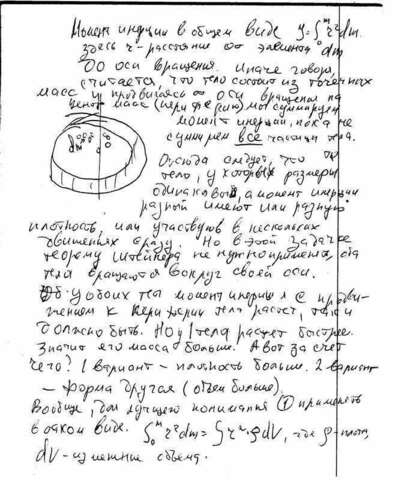 Момент инерции в общем виде J=∫₀ᵐ r²dm.
здесь r - расстояние от элемента dm
до оси вращения. Иначе говоря,
считается, что тело состоит из точечных
масс и оси вращения на
центр масс (или мы суммируем
момент инерции, пока не
суммируем все частицы тела.
dm
Отсюда следует, что
тело, у которых размеры
одинаковый, а момент инерции
разный имеют или разную
плотность, или участвуют в нескольких
движениях сразу. Но в этой задаче
теорему Штейнера не нужно применять,
тела вращаются вокруг своей оси.
у обоих тел момент инерции с
к периферии тела растет, так и
должно быть. Но у 1 тела растет быстрее.
Значит его масса больше. А вот за счет
чего? 1 вариант - плотность больше. 2 вариант
- форма другая (объем больше).
Вообще, для лучшего понимания ① применять
в таком виде. ∫₀ᵐ r²dm = ∫ r²·ρ dV, где ρ - плот,
dV - изменение объема.